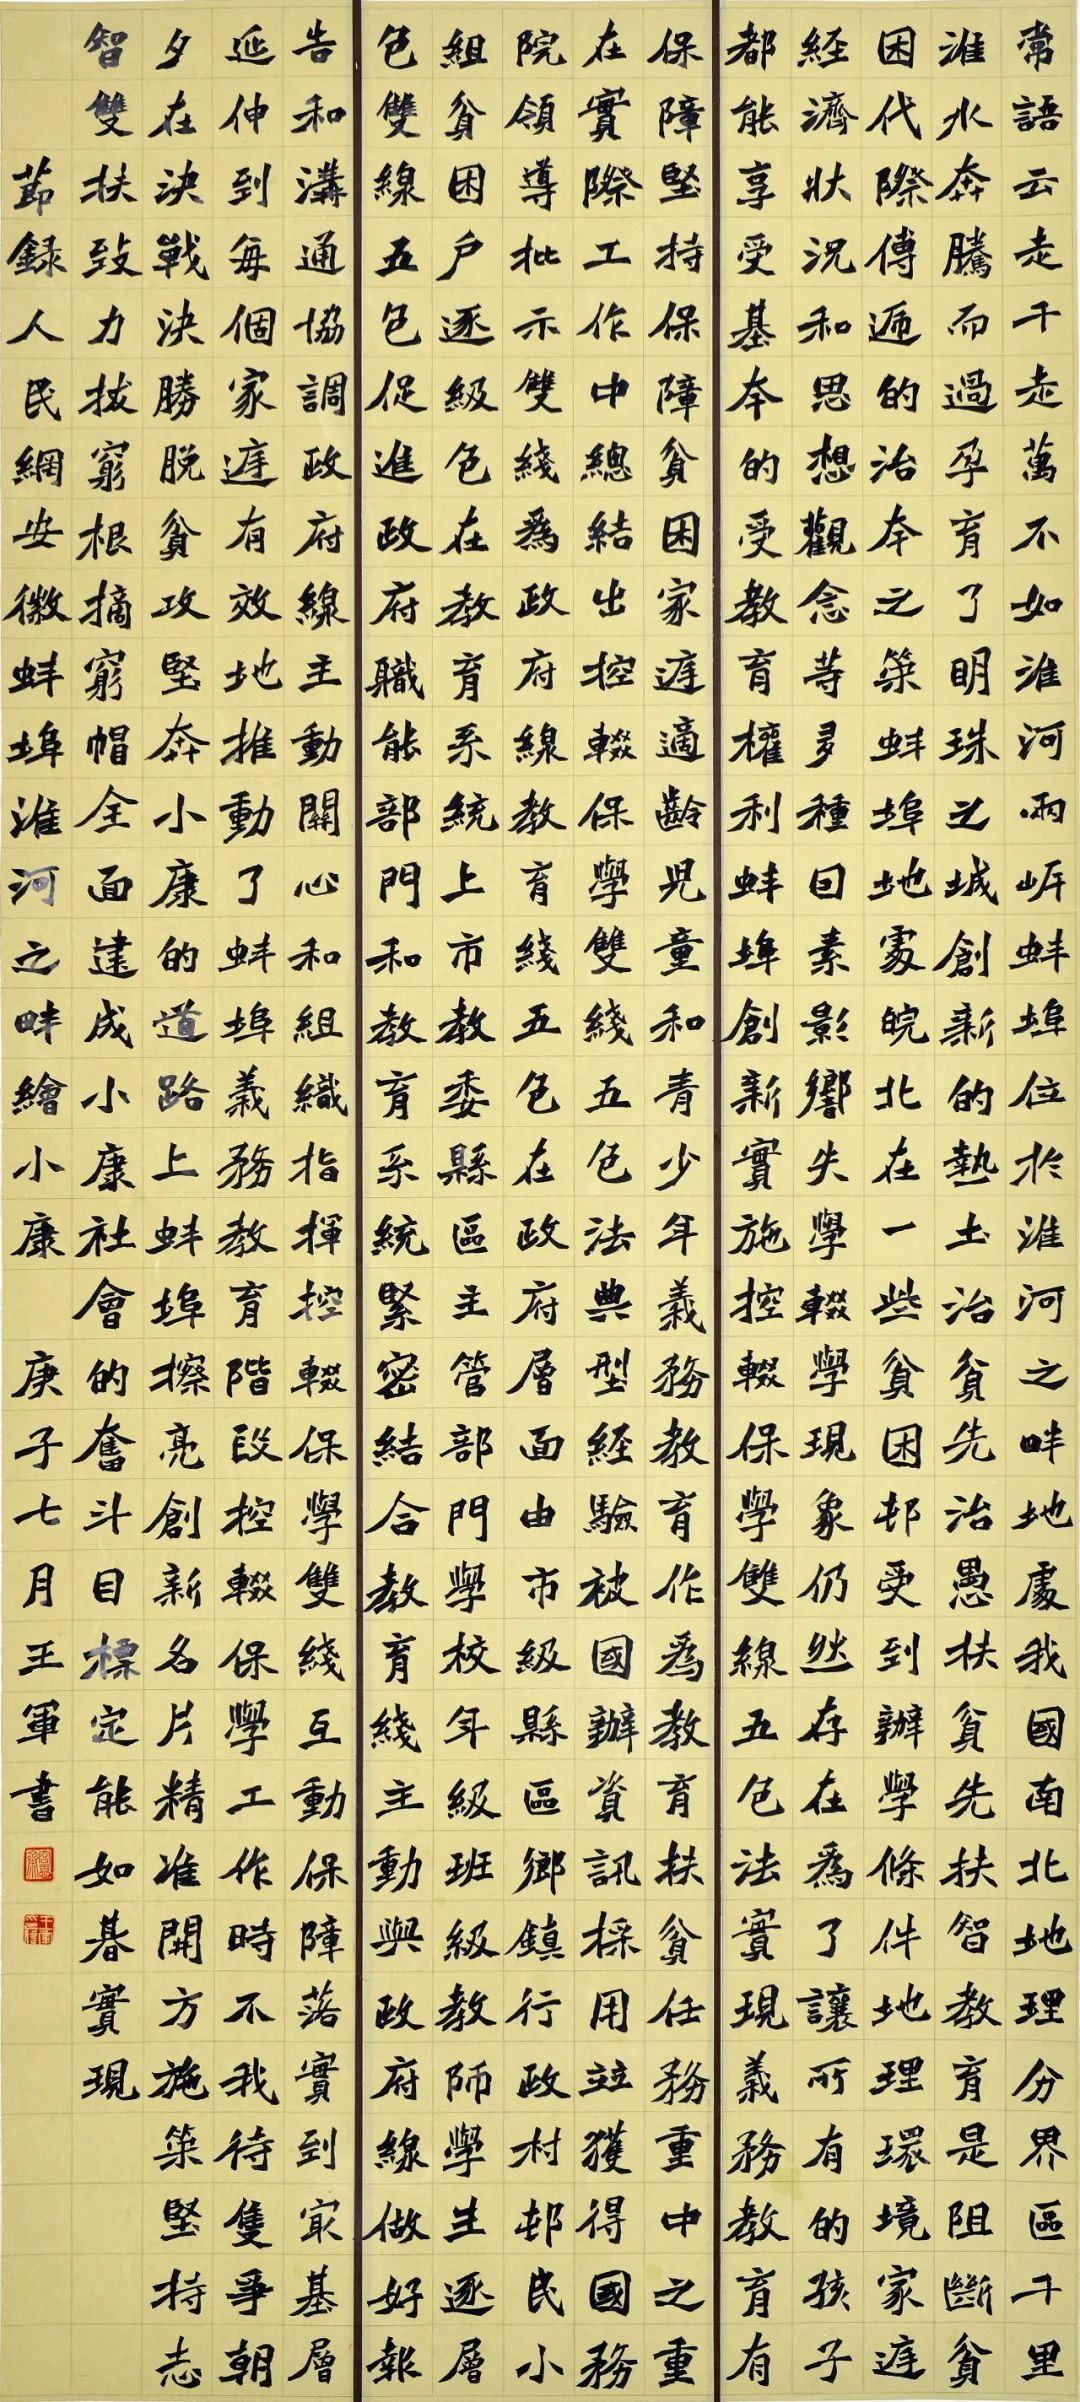 常語云走千走萬不如淮河兩岍蚌埠位於淮河之畔地處我國南北地理分界區千里
淮水奔騰而過孕育了明珠之城創新的熱土治貧先治愚扶貧先扶智教育是阻斷貧
困代際傳遞的治本之策蚌埠地處皖北在一些貧困邨受到辦學條件地理環境家庭
經濟狀況和思想觀念等多種因素影響失學輟學現象仍然存在為了讓所有的孩子
都能享受基本的受教育權利蚌埠創新實施控輟保學雙線五包法實現義務教育有
保障堅持保障貧困家庭適齡兒童和青少年義務教育作為教育扶貧任務重中之重
在實際工作中總結出控輟保學雙綫五包法典型經驗被國辦資訊採用並獲得國務
院領導批示雙綫為政府線教育綫五包在政府層面由市級縣區鄉鎮行政村邨民小
組貧困戶逐級包在教育系統上市教委縣區主管部門學校年級班級教師學生逐層
包雙線五包促進政府職能部門和教育系統緊密結合教育綫主動與政府線做好報
告和溝通協調政府線主動關心和組織指揮控輟保學雙綫互動保障落實到最基層
延伸到每個家庭有效地推動了蚌埠義務教育階段控輟保學工作時不我待隻爭朝
夕在決戰決勝脫貧攻堅奔小康的道路上蚌埠擦亮創新名片精准開方施策堅持志
智雙扶致力拔窮根摘窮帽全面建成小康社會的奮斗目標定能如期實現
節錄人民網安徽蚌埠淮河之畔繪小康 庚子七月王軍書